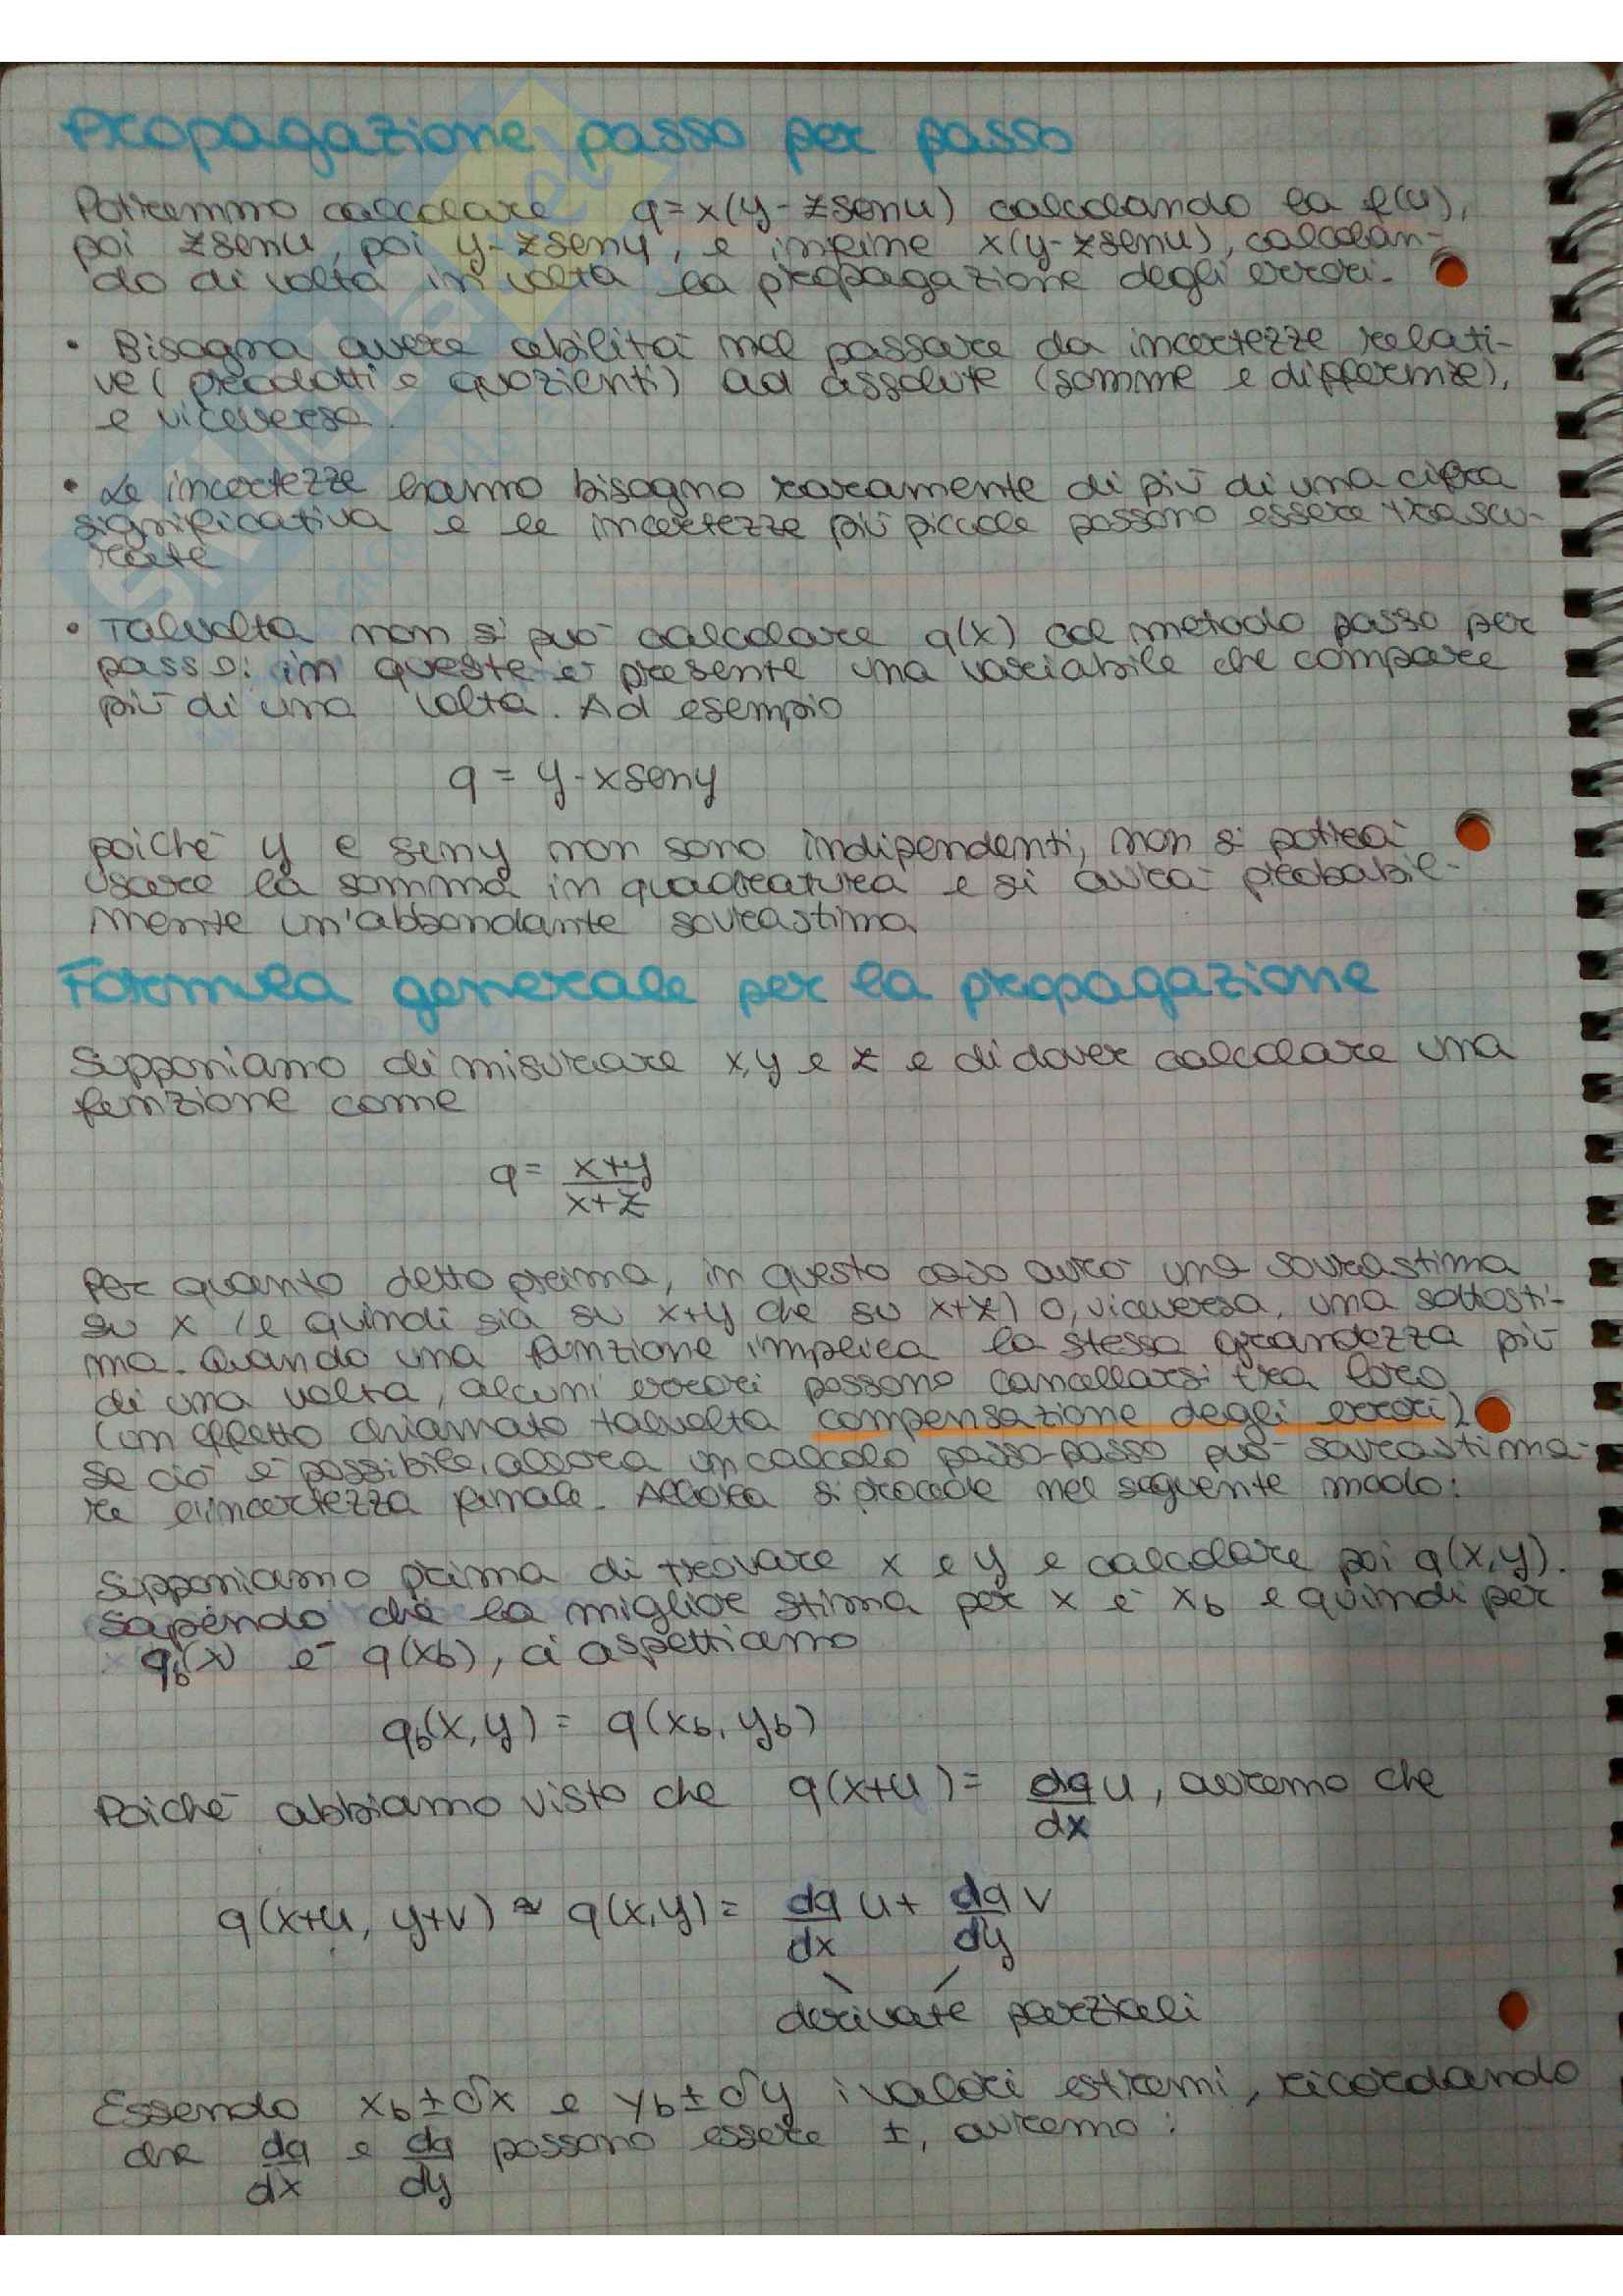 Propagazione passo per passo
Potremmo calcolare q=x(y-zsenu) calcolando la f(u),
poi zsenu, poi y-zseny, e infine x(y-zsenu), calcolan-
do di volta in volta la propagazione degli errori.
• Bisogna avere abilità nel passare da incertezze relati-
ve (prodotti e quozienti) ad assolute (somme e differenze),
e viceversa.
• Le incertezze hanno bisogno raramente di più di una cifra
significativa e le incertezze più piccole possono essere trascu-
rate
• Talvolta non si può calcolare q(x) col metodo passo per
passo: in queste è presente una variabile che compare
più di una volta. Ad esempio
q = y-xseny
poiché y e seny non sono indipendenti, non si potrà
usare la somma in quadratura e si avrà probabil-
mente un'abbondante sovrastima.
Formula generale per la propagazione
Supponiamo di misurare x,y e z e di dover calcolare una
funzione come
q = x+y
x+z
Per quanto detto prima, in questo caso avrò una sovrastima
su x (e quindi sia su x+y che su x+z) o, viceversa, una sottosti-
ma. Quando una funzione implica la stessa grandezza più
di una volta, alcuni errori possono cancellarsi tra loro
(un effetto chiamato talvolta compensazione degli errori).
se ciò è possibile, allora un calcolo passo-passo può sovrastima-
re l'incertezza finale. Allora si procede nel seguente modo:
Supponiamo prima di trovare x e y e calcolare poi q(x,y).
Sapendo che la miglior stima per x è xb e quindi per
qb(x) è q(xb), ci aspettiamo
qb(x,y) = q(xb, yb)
Poiché abbiamo visto che q(x+u) = dq u, avremo che
dx
q(x+u, y+v) ≈ q(x,y) = dq u + dq v
dx dy
derivate parziali
Essendo xb±δx e yb±δy i valori estremi, ricordando
che dq e dq possono essere ±, avremo:
dx dy